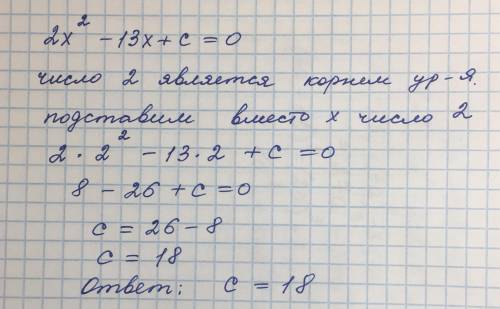 2x² - 13x + c = 0
число 2 является корнем ур-я.
подставим вместо x число 2
2 · 2² - 13 · 2 + c = 0
8 - 26 + c = 0
c = 26 - 8
c = 18
Ответ: c = 18